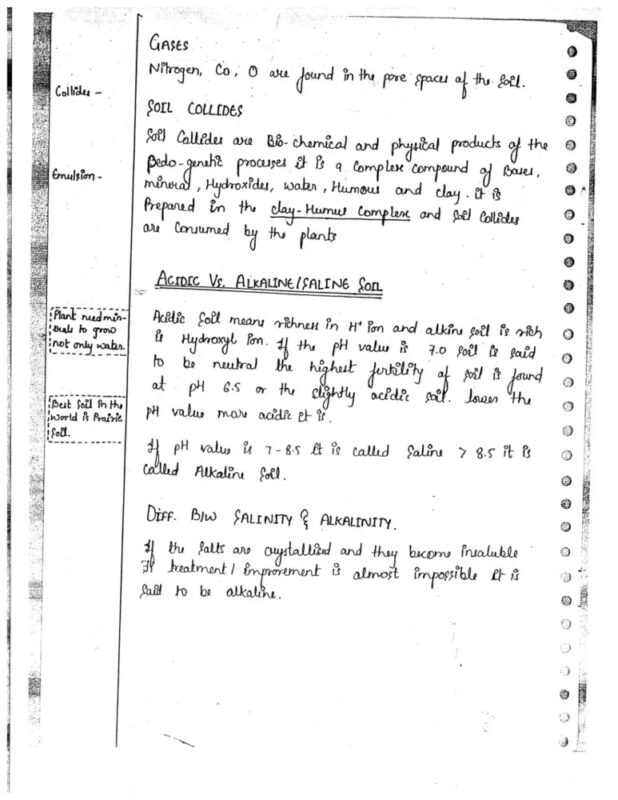 GASES
Nitrogen, Co, O are found in the pore spaces of the soil.
Collides -
SOIL COLLIDES
Soil Collides are Bio-chemical and physical products of the
Pedo-genetic processes it is a Complex compound of Bases,
Emulsion -
mineral, Hydroxides, water, Humous and clay. it is
Prepared in the clay-Humus Complex and Soil Collides
are Consumed by the plants
ACIDIC Vs. ALKALINE/SALINE SOIL
Plant need min-
erals to grow
not only water.
Acidic Soil means richness in H+ Ion and alkine soil is rich
is Hydroxyl Ion. If the pH value is 7.0 soil is said
to be neutral the highest fertility of soil is found
at pH 6.5 or the slightly acidic soil. lower the
pH value more acidic it is.
Best Soil in the
world is Prairie
Soil.
If pH value is 7-8.5 it is called Saline > 8.5 it is
called Alkaline Soil.
DIFF. B/W SALINITY & ALKALINITY.
If the Salts are crystallized and they become insaluble
If treatment/improvement is almost impossible it is
Said to be alkaline.